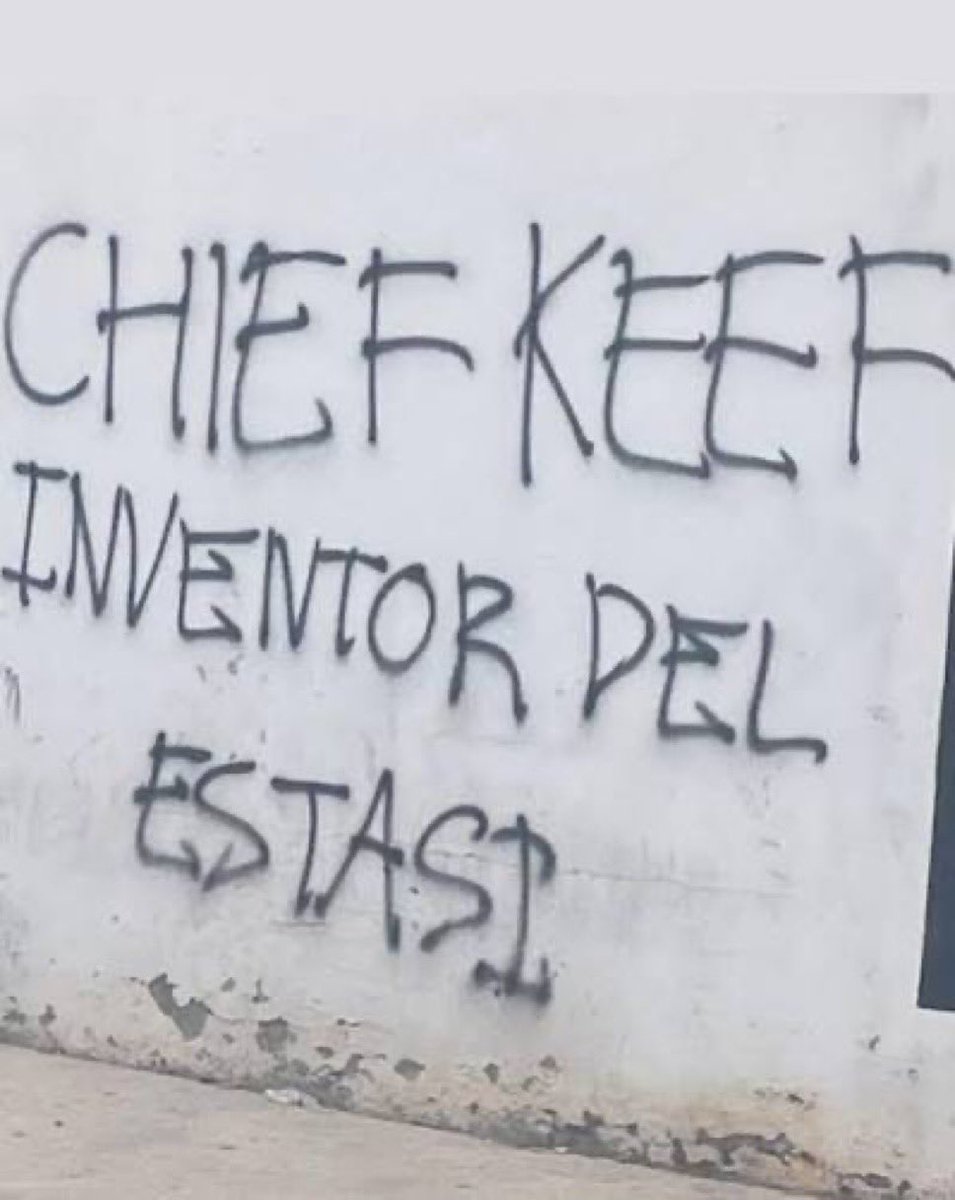 CHIEF KEEF
INVENTOR DEL
ESTASI